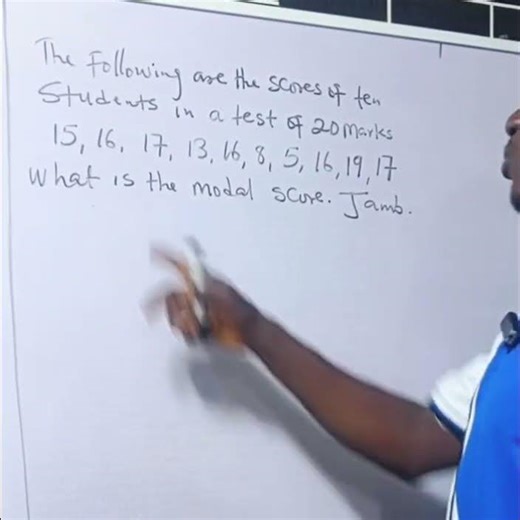 The Following are the scores of ten
Students in a test of 20 marks
15, 16, 17, 13, 16, 8, 5, 16, 19, 17
What is the modal score. Jamb.